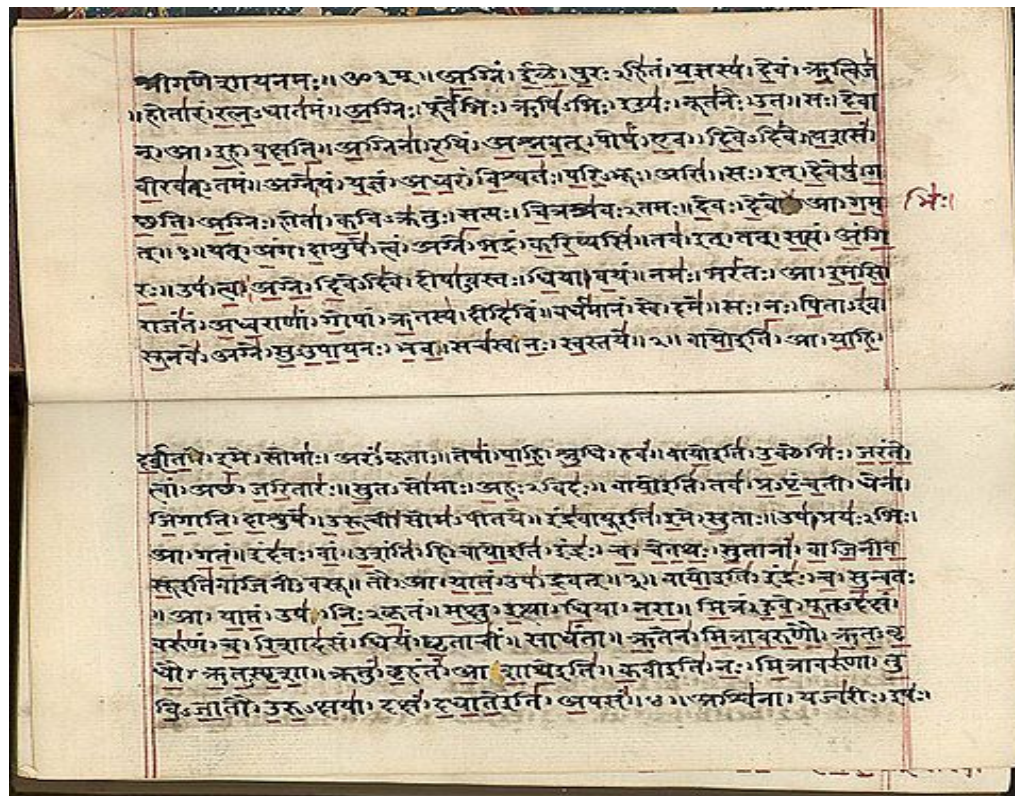 श्रीगणेशायनमः॥ॐ३म्॥अग्निं। ईळे। पुरःऽहितं। यज्ञस्य। देवं। ऋत्विजं
॥होतारं। रत्नऽधातमं॥अग्निः। पूर्वेभिः। ऋषिऽभिः। ईड्यः। नूतनैः। उत॥सः। देवा
न्। आ। इह। वक्षति॥अग्निना। रयिं। अश्नवत्। पोषं। एव। दिवेऽदिवे। यशसं
वीरवत्ऽतमं॥अग्ने। यं। यज्ञं। अध्वरं। विश्वतः। परिऽभूः। असि॥सः। इत्। देवेषु। ग
च्छति। अग्निः। होता। कविऽक्रतुः। सत्यः। चित्रश्रवःऽतमः॥देवः। देवे आ। गम
भिः।
त्॥१॥यत्। अंग। दाशुषे। त्वं। अग्ने। भद्रं। करिष्यसि॥तव। इत्। तत्। सत्यं। अंगि
रः॥उप। त्वा। अग्ने। दिवेऽदिवे। दोषाऽवस्तः। धिया। वयं॥नमः। भरंतः। आ। इमसि
राजंतं। अध्वराणां। गोपां। ऋतस्य। दीदिविं॥वर्धमानं। स्वे। दमे॥सः। नः। पिताऽइव।
सूनवे। अग्ने। सुऽउपायनः। भव॥सचस्व। नः। स्वस्तये॥२॥वायोइति। आ। याहि।
दर्शत। इमे। सोमाः। अरंऽकृताः॥तेषां। पाहि। श्रुधि। हवं॥वायोइति। उक्थेभिः। जरंते।
त्वां। अच्छ। जरितारः॥सुतऽसोमाः। अहःऽविदः॥वायोइति। तव। प्रऽपृंचती। धेना।
जिगाति। दाशुषे॥उरूची। सोमऽपीतये॥इंद्रवायूइति। इमे। सुताः॥उप। प्रयःऽभिः।
आ। गतं॥इंदवः। वां। उशंति। हि॥वायोइति। इंद्रः। च। चेतथः। सुतानां। वाजिनीव
सूइतिवाजिनीऽवसू॥तौ। आ। यातं। उप। द्रवत्॥३॥वायोइति। इंद्रः। च। सुन्वतः
॥आ। यातं। उप। निःऽकृतं॥मक्षु। इत्था। धिया। नरा॥मित्रं। हुवे। पूतऽदक्षं।
वरुणं। च। रिशादसं॥धियं। घृताचीं॥साधंता॥ऋतेन। मित्रावरुणौ। ऋतऽवृ
धौ। ऋतऽस्पृशा॥क्रतुं। बृहंतं। आ। शाथेइति॥कवीइति। नः। मित्रावरुणा। तु
विऽजातौ। उरुऽक्षया। दक्षं। दधातेइति। अपसं॥४॥अश्विना। यज्वरीः। इषः।